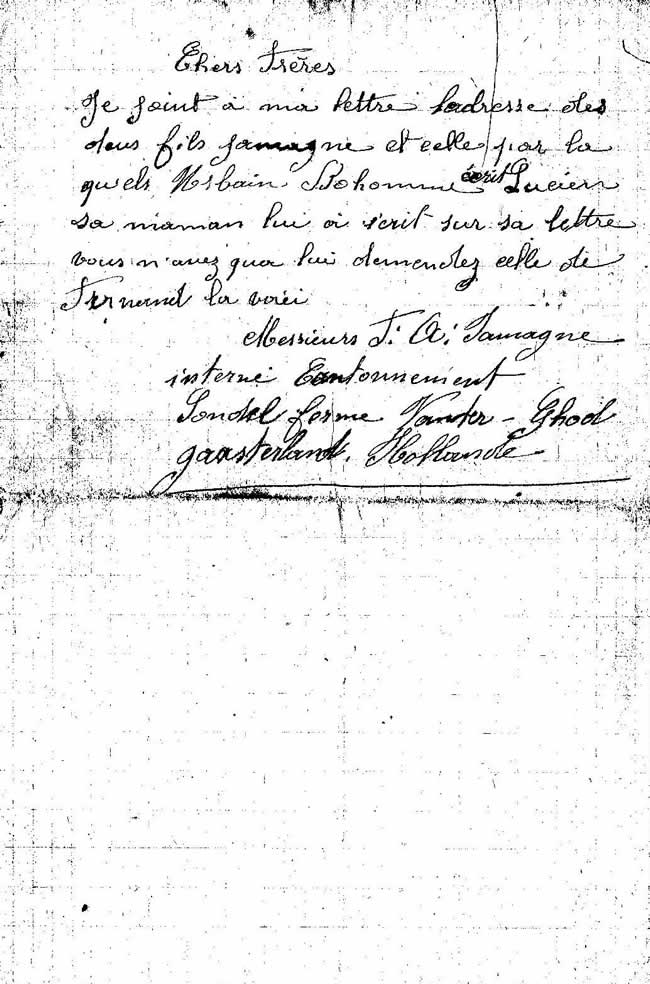 Chers Frères
Je joint a ma lettre ladresse des
deus fils Jamagne et celle par la
quels Urbain Bohomme écrit Lucien
sa maman lui a écrit sur sa lettre
vous n'avez qua lui demendez celle de
Fernand la voici
Messieurs F. A. Jamagne
interné Cantonnement
Sondel ferme Vander - Ghoil
gaasterland. Hollande